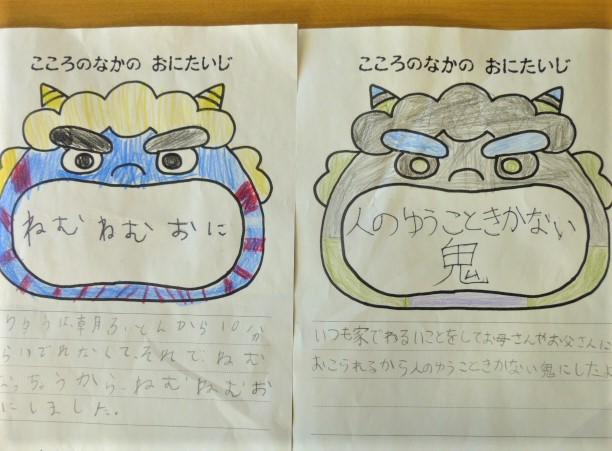 こころのなかの おにたいじ
ねむ ねむ おに
ら10分
ねむ
ちょうから、ねむねむお
にしました。
こころのなかの おにたいじ
人のゆうこときかない
鬼
いつも家でわるいことをしてお母さんやお父さんに
おこられるから人のゆうこときかない鬼にしたよ